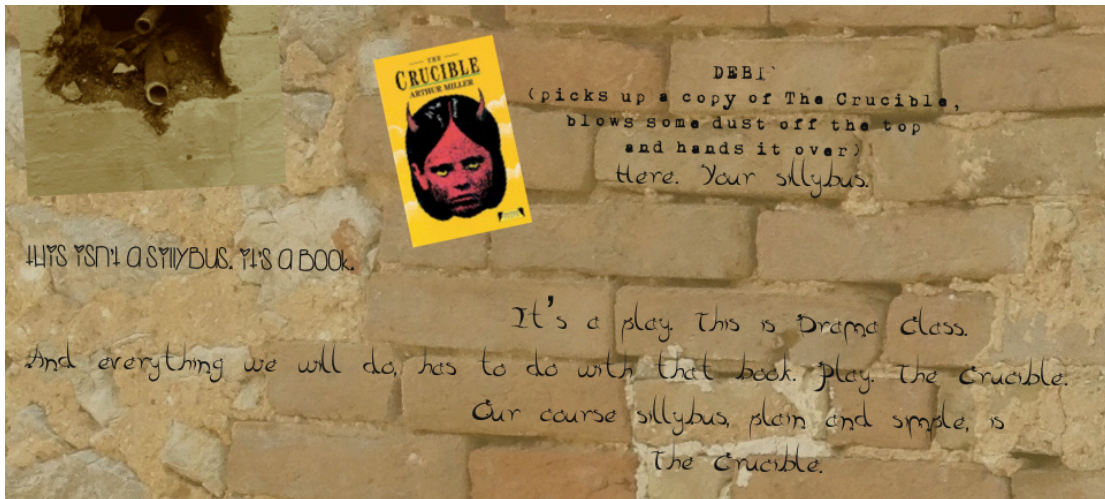 THE
CRUCIBLE
ARTHUR MILLER
DEBI`
(picks up a copy of The Crucible,
blows some dust off the top
and hands it over)
Here. Your sillybus.
tHiS iSn't a SillYBUS. it'S a BOOK.
It's a play. This is Drama Class.
And everything we will do, has to do with that book. Play. The Crucible.
Our course sillybus, plain and simple, is
The Crucible.